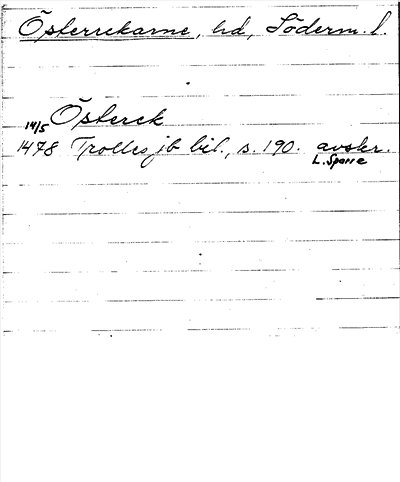 Österrekarne, hd, Söderm. l.
Österek
14/5
1478 Trolles jb bil., s. 190. avskr.
L. Sparre